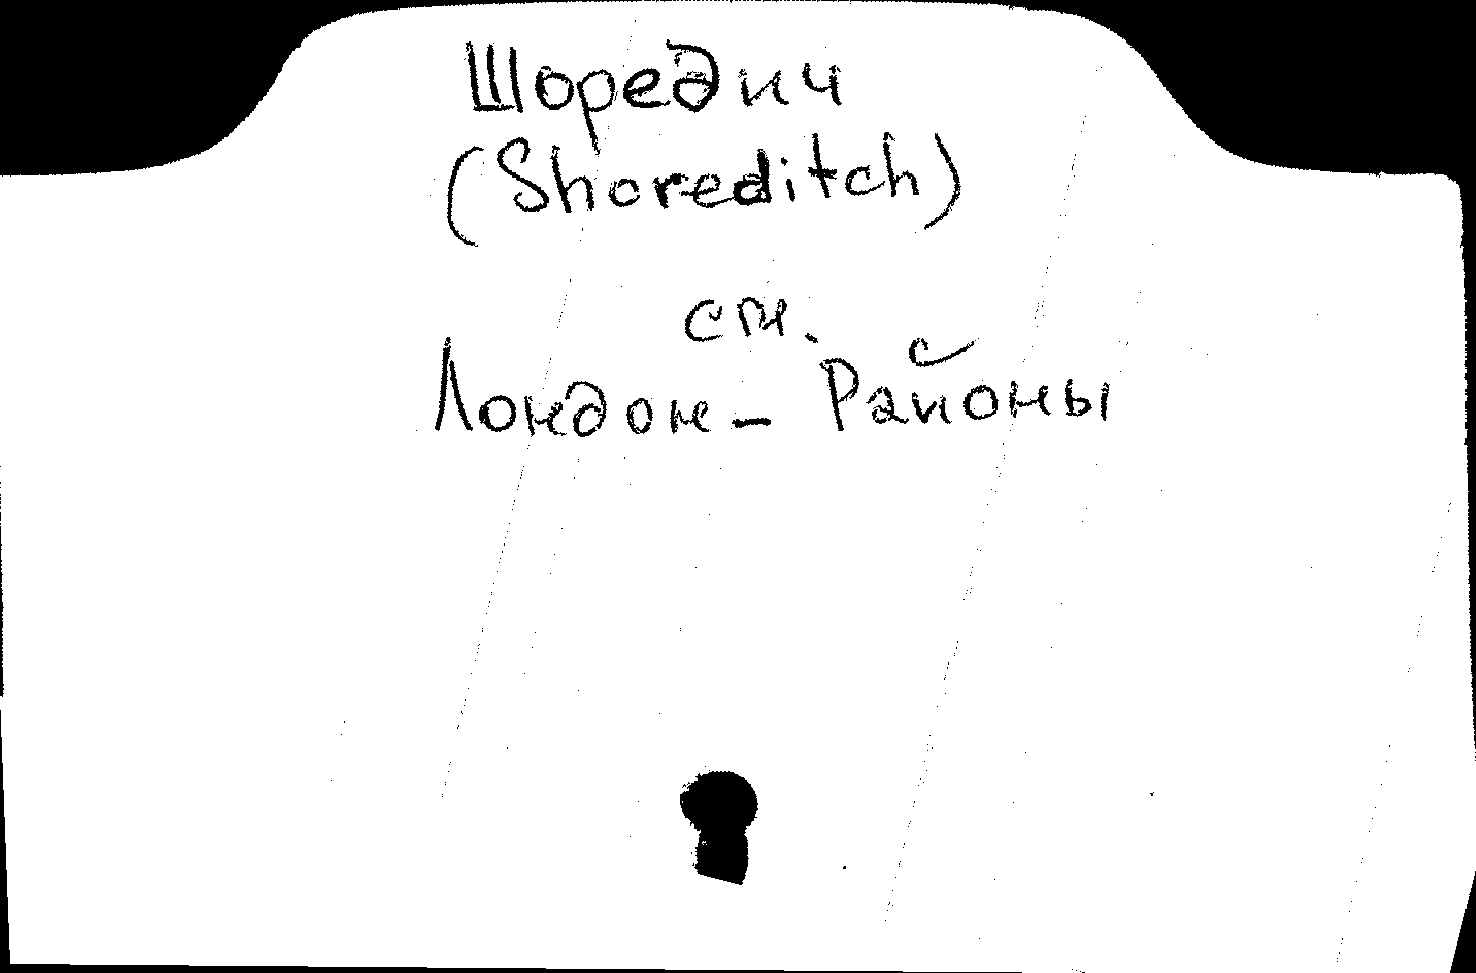 Шоредич
(Shoreditch)
см.
Лондон - Районы